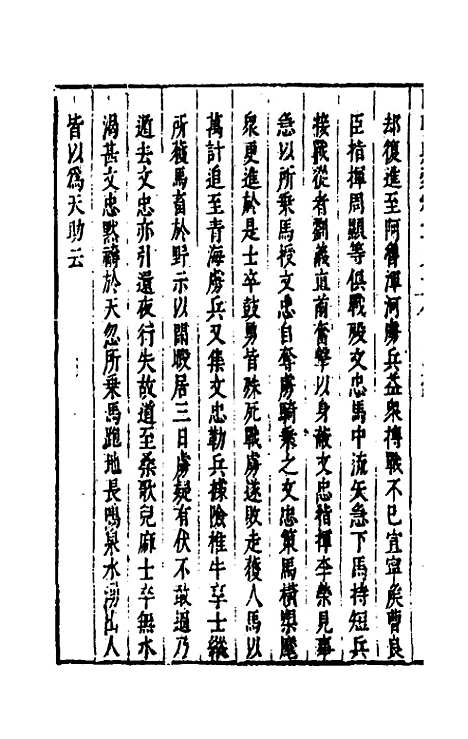 却復進至阿魯渾河虜兵益衆搏戰不已宜寧矦曹良
臣指揮周顯等俱戰歿文忠馬中流矢急下馬持短兵
接戰從者劉義直前奮擊以身蔽文忠指揮李榮見事
急以所乗馬授文忠自奪虜騎乗之文忠策馬橫槊麾
衆更進於是士卒鼓勇皆殊死戰虜遂敗走獲人馬以
萬計追至青海虜兵又集文忠勒兵據險椎牛享士縱
所獲馬畜於野示以閒暇居三日虜疑有伏不敢逼乃
遁去文忠亦引還夜行失故道至桑歌兒麻士卒無水
渴甚文忠黙禱於天忽所乗馬跑地長鳴泉水湧出人
皆以爲天助云